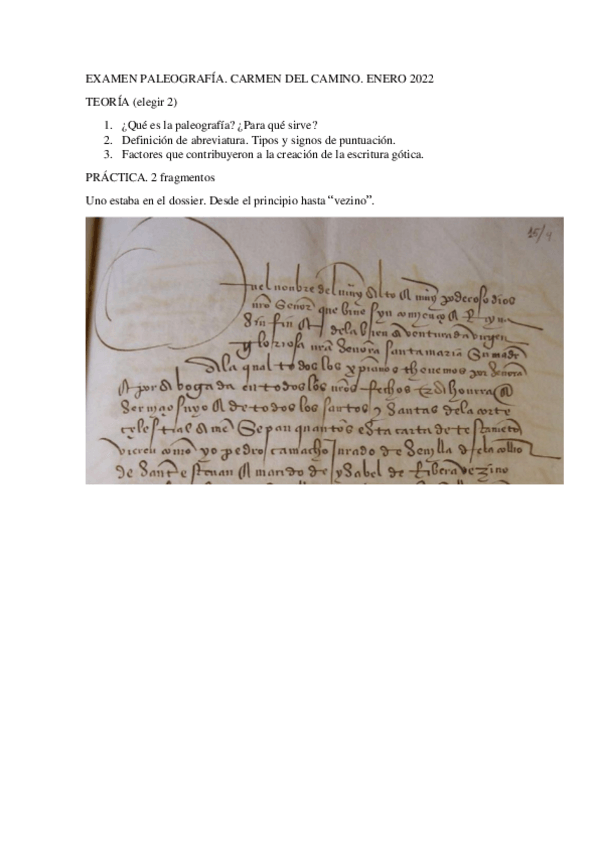 EXAMEN PALEOGRAFÍA. CARMEN DEL CAMINO. ENERO 2022
TEORÍA (elegir 2)
1. ¿Qué es la paleografía? ¿Para qué sirve?
2. Definición de abreviatura. Tipos y signos de puntuación.
3. Factores que contribuyeron a la creación de la escritura gótica.
PRÁCTICA. 2 fragmentos
Uno estaba en el dossier. Desde el principio hasta “vezino”.
15/4
nel nonbre del muy alto & muy poderoso dios
nro Señor que biue syn comienço & Reyna
syn fin & de la bien aventurada virgen
gloriosa nra señora santa maria Su madre
a la qual todos los xpianos thenemos por señora
& por abogada en todos los nros fechos & a honrra &
seruiçio suyo & de todos los santos y santas de la corte
çelestial amen Sepan quantos esta carta de testamento
vieren como yo pedro camacho Jurado de Seuilla
de Sant esteuan & marido de ysabel de Ribera vezino